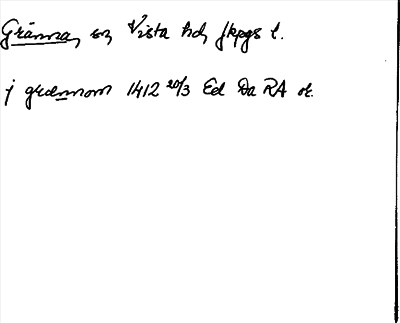 Gränna, sn Vista hd, Jkpgs l.
j grænnom 1412 20/3 Ed Da RA or.